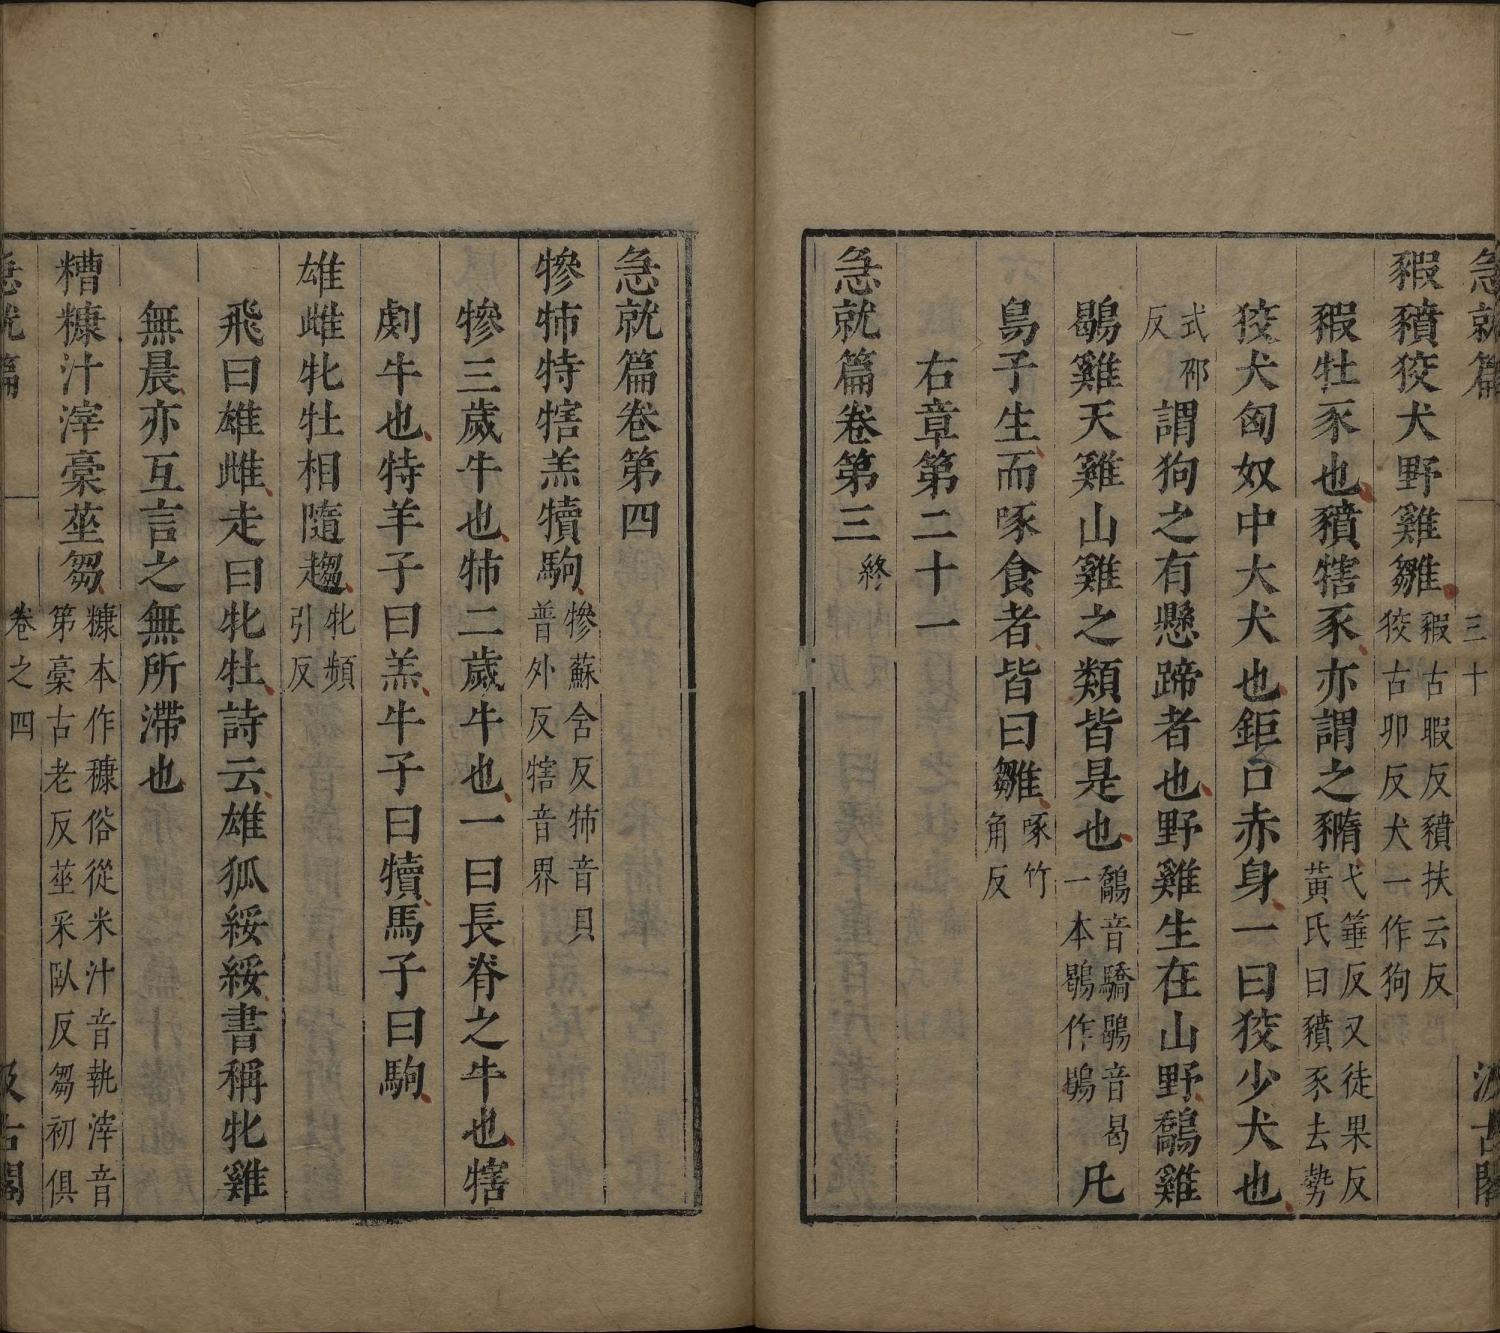 急就篇
三十
汲古閣
豭豶狡犬野雞雛豭古暇反豶扶云反狡古卯反犬一作狗
豭牡豕也豶犗豕亦謂之豬弋箠反又徒果反黃氏曰豶豕去勢
狡犬匈奴中大犬也鉅口赤身一曰狡少犬也
式邪反謂狗之有懸蹄者也野雞生在山野鷮雞
鶡雞天雞山雞之類皆是也鷮音驕鶡音曷一本鶡作鴠凡
鳥子生而啄食者皆曰雛啄竹角反
右章第二十一
急就篇卷第三終
急就篇卷第四
犙㸬特犗羔犢駒犙蘇含反㸬音貝普外反犗音界
犙三歲牛也㸬二歲牛也一曰長脊之牛也犗
劇牛也特羊子曰羔牛子曰犢馬子曰駒
雄雌牝牡相隨趨牝頻引反
飛曰雄雌走曰牝牡詩云雄狐綏綏書稱牝雞
無晨亦互言之無所滯也
糟糠汁滓稾莝芻糠本作穅俗從米汁音執滓音第稾古老反莝采臥反芻初俱
急就篇
卷之四
汲古閣